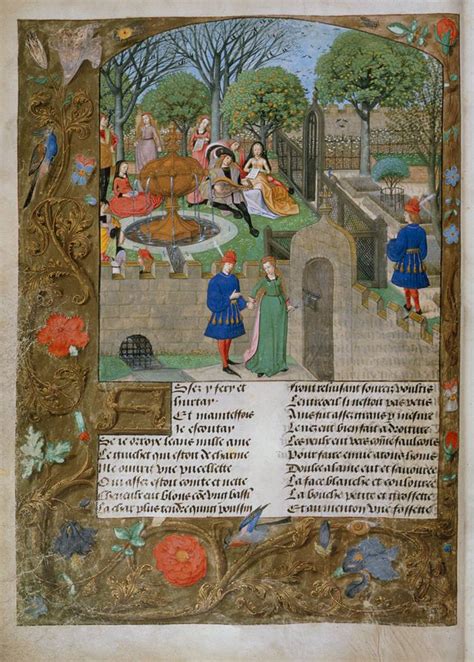 Assez y fery et
hurtay
Et maintesfois
Je escoutay
Se je orroye leans nulle ame
Le huichet qui estoit de charme
Me ouvrit une pucellette
Qui assez estoit cointe et nette
Cheveulx eut blons côe ung bassin
La char plus tendre qung poussin
Front reluisant sourcilz voultis
Lentreoeil si nestoit pas petis
Ains fut assez grans p mesure
Le nez eut bien fait a droiture
Les yeulx eut vers côme faulcons
Pour faire envie a tous homs
Doulce alaine eut et savouree
La face blanche et coulouree
La bouche petite et grossette
Et au menton une fossette